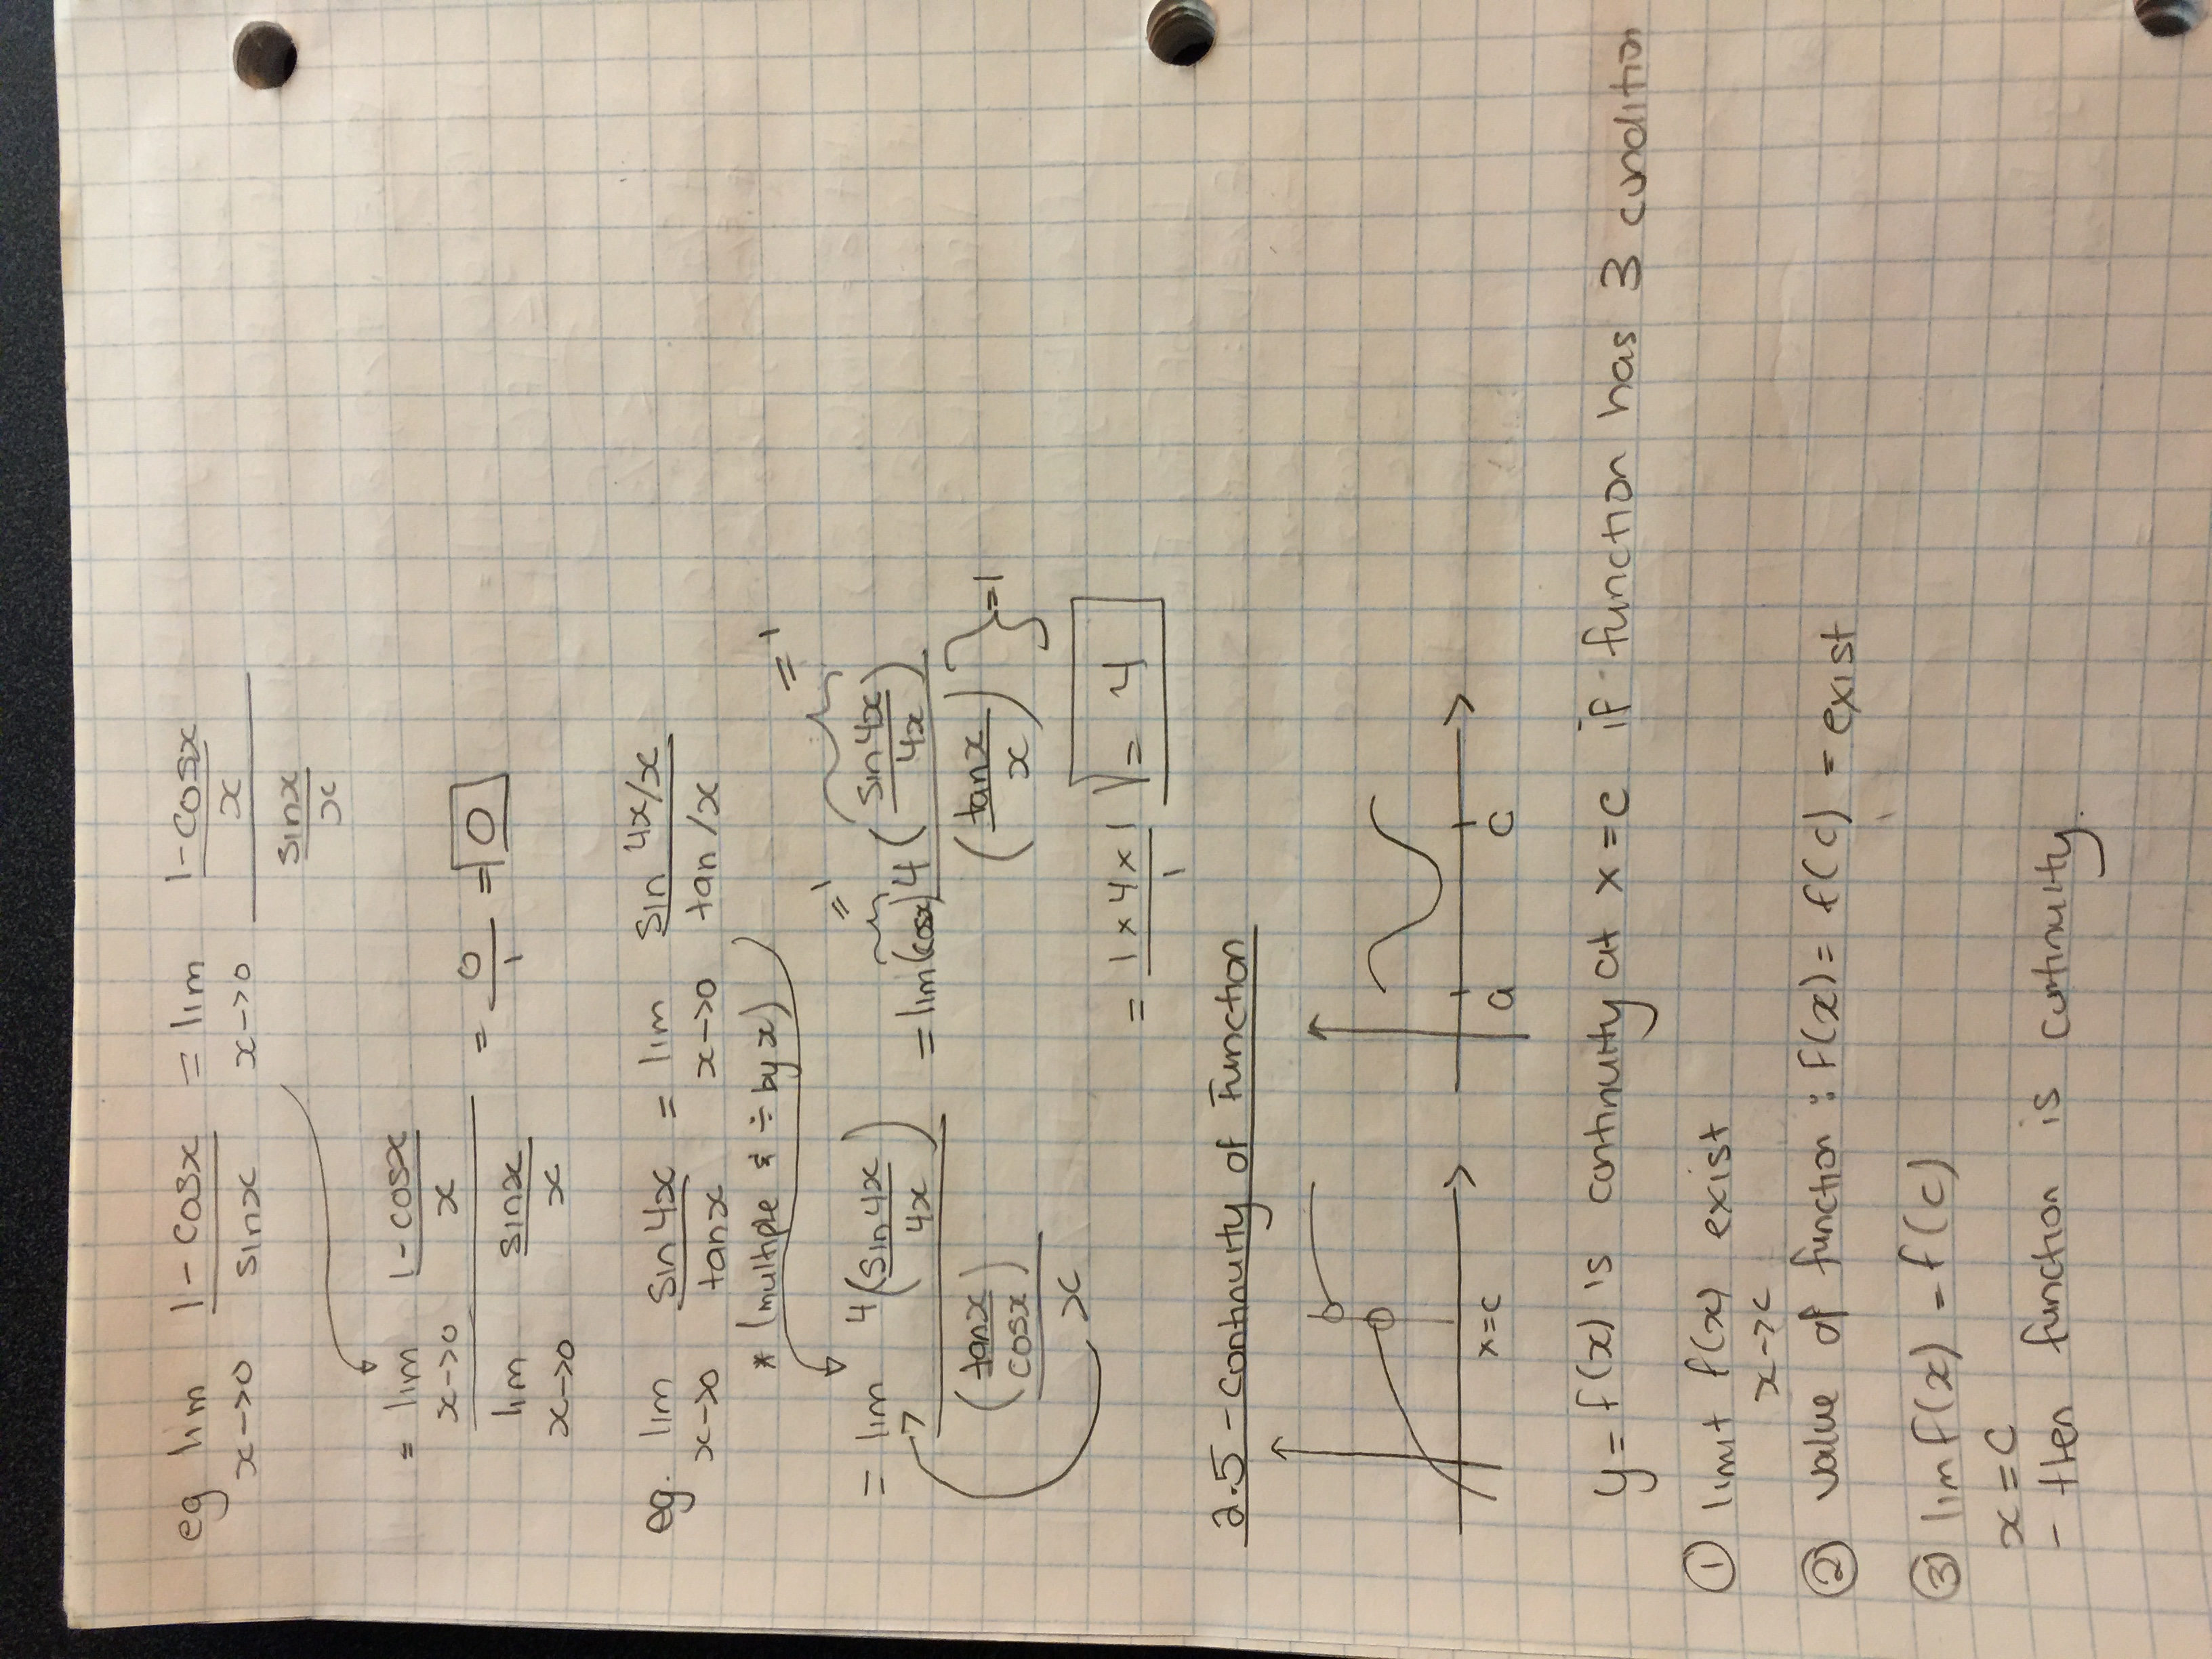 eg lim x→0 1 - cosx / sinx = lim x→0 (1 - cosx / x) / (sinx / x)
= lim x→0 (1 - cosx / x) / lim x→0 (sinx / x) = 0/1 = 0
eg. lim x→0 sin4x / tanx = lim x→0 sin 4x/x / tan/x
* (multiple & ÷ by x)
= lim 4(sin4x / 4x) / (tanx / cosx) / x = lim (cosx) 4 (sin4x / 4x) / (tanx / x)
=1
=1
=1
= 1 x 4 x 1 / 1 = 4
2.5 - Continuity of Function
x=c
a c
y = f(x) is continuity at x = c if function has 3 condition
① limit f(x) exist
x→c
② value of function : f(x) = f(c) = exist
③ lim f(x) = f(c)
x = c
- then function is continuity.